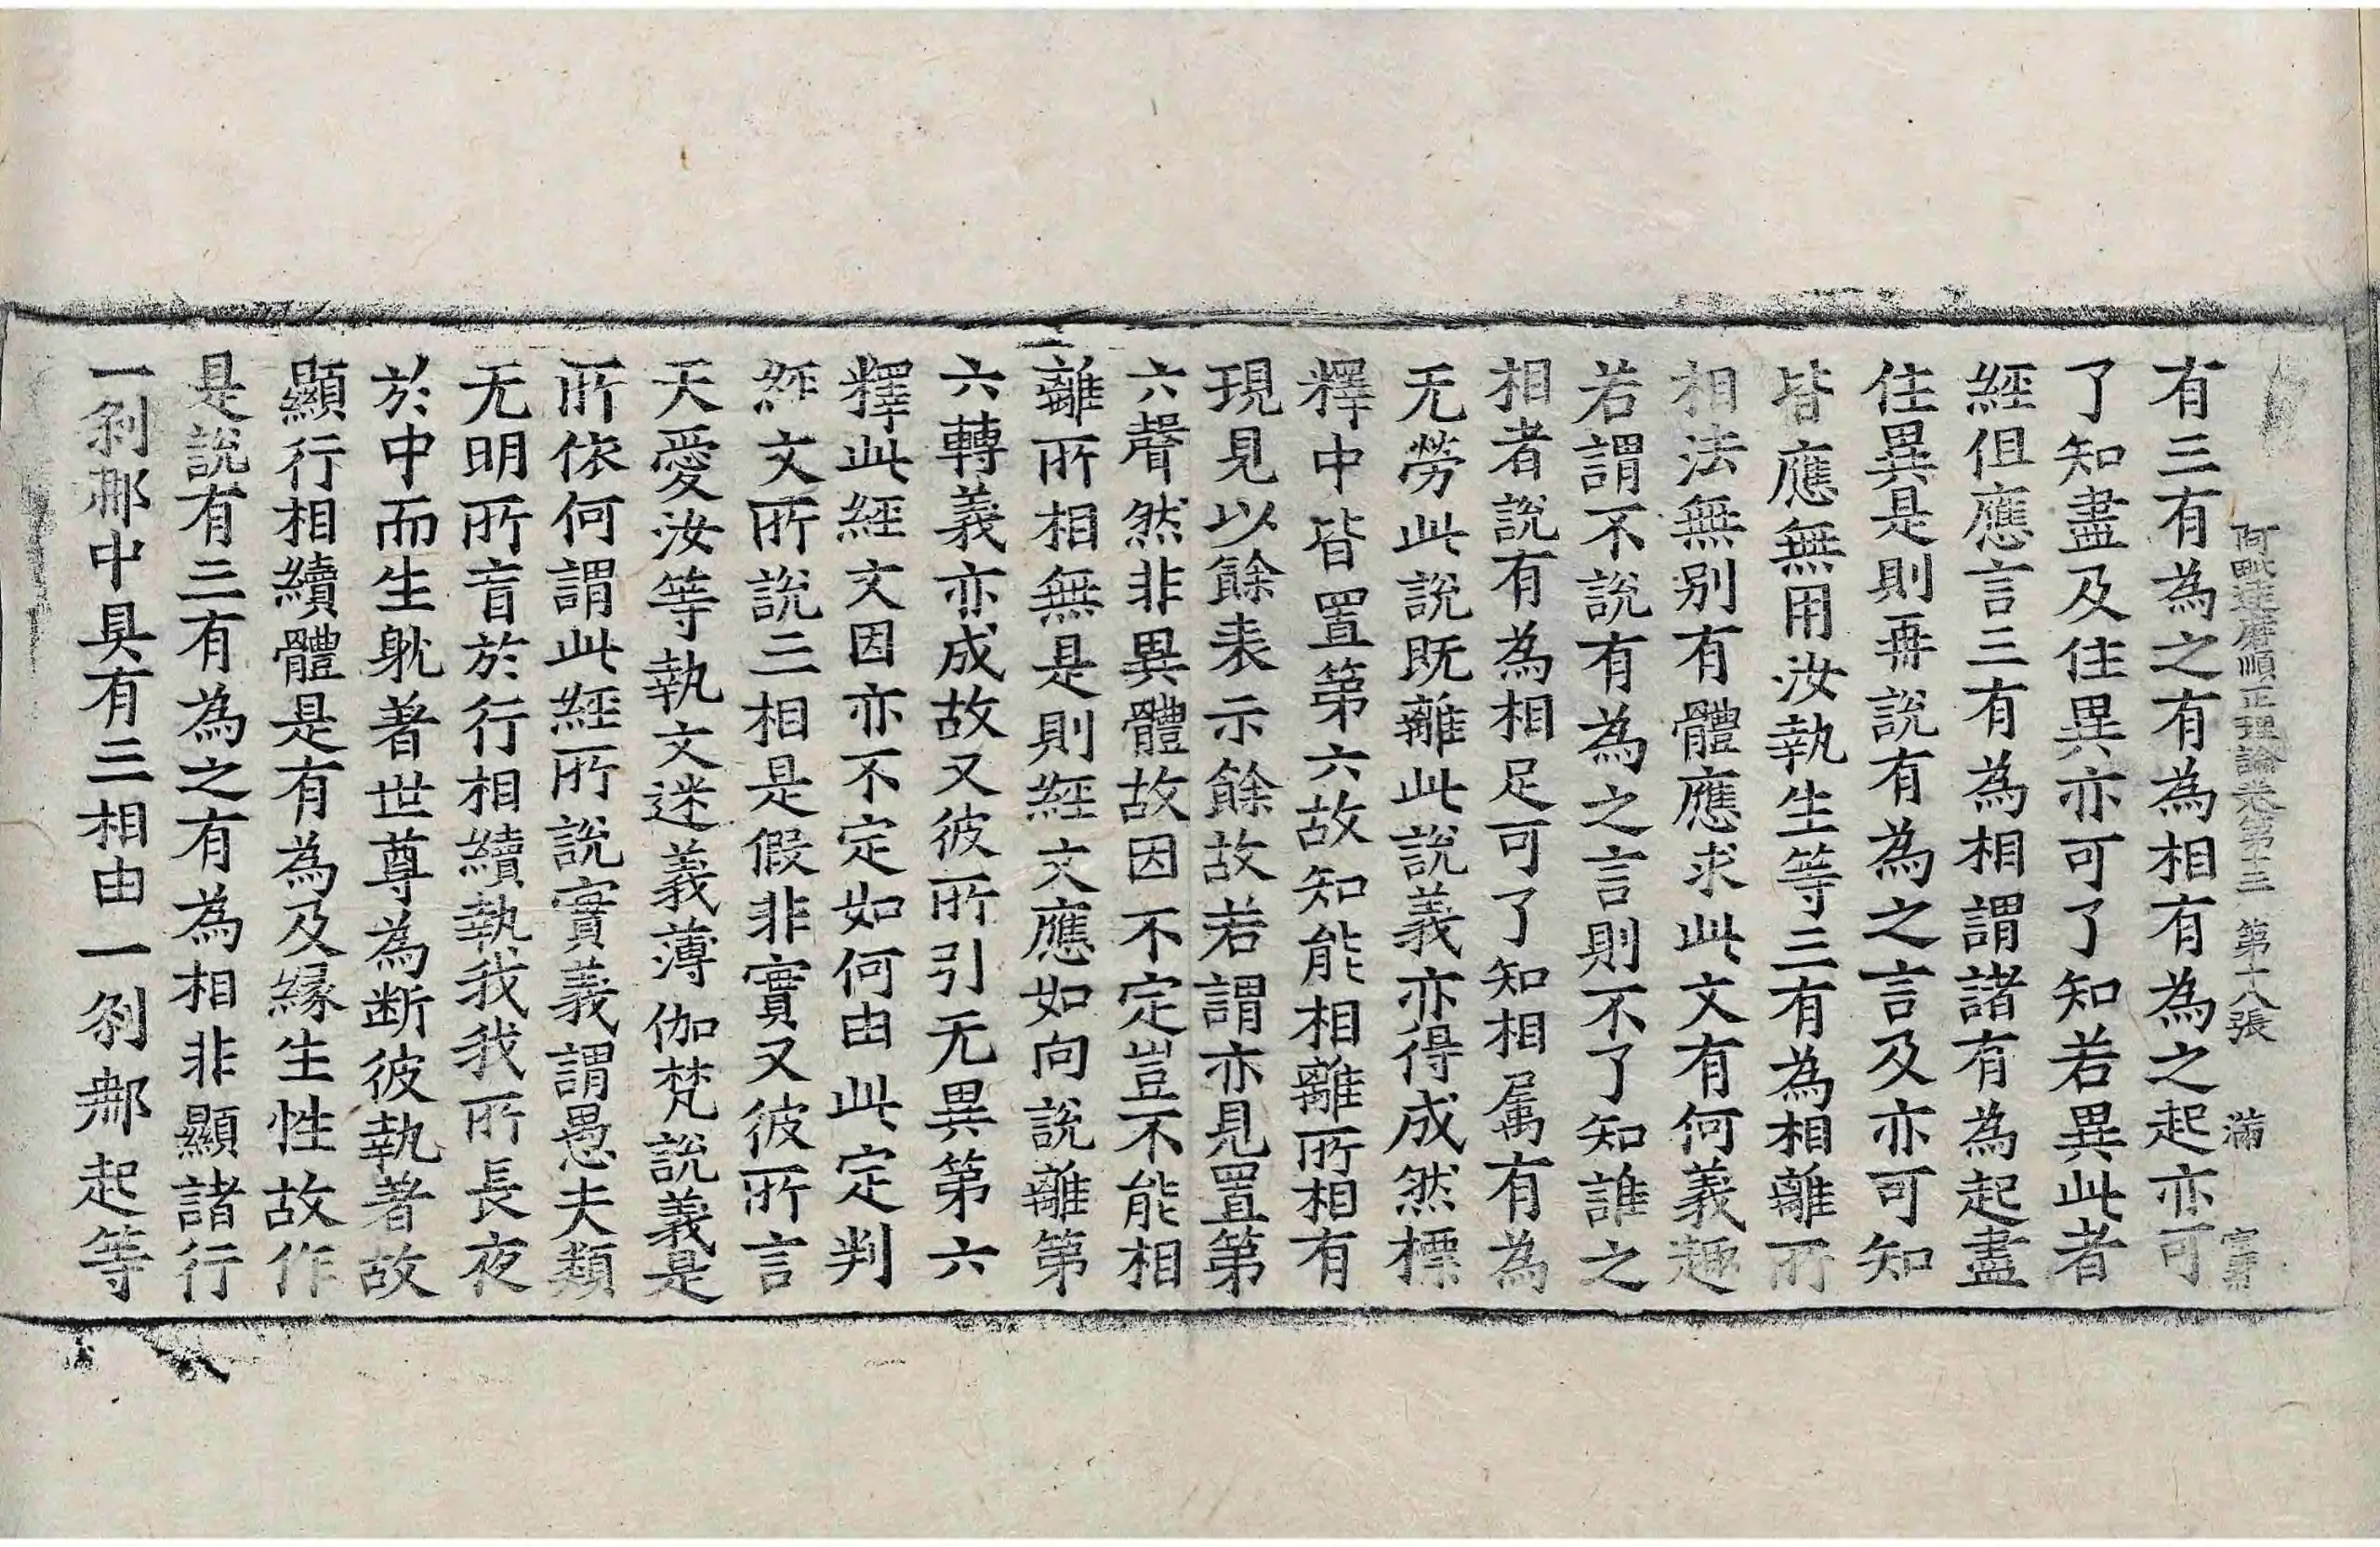 阿毗達磨順正理論卷第十三 第十八張 滿
有三有為之有為相有為之起亦可
了知盡及住異亦可了知若異此者
經但應言三有為相謂諸有為起盡
住異是則再說有為之言及亦可知
皆應無用汝執生等三有為相離所
相法無别有體應求此文有何義趣
若謂不說有為之言則不了知誰之
相者說有為相足可了知相屬有為
无勞此說既離此說義亦得成然標
釋中皆置第六故知能相離所相有
現見以餘表示餘故若謂亦見置第
六聲然非異體故因不定豈不能相
離所相無是則經文應如向說離第
六轉義亦成故又彼所引无異第六
釋此經文因亦不定如何由此定判
經文所說三相是假非實又彼所言
天愛汝等執文迷義薄伽梵說義是
所依何謂此經所說實義謂愚夫類
无明所盲於行相續執我我所長夜
於中而生躭著世尊為断彼執著故
顯行相續體是有為及緣生性故作
是說有三有為之有為相非顯諸行
一刹那中具有三相由一刹那起等